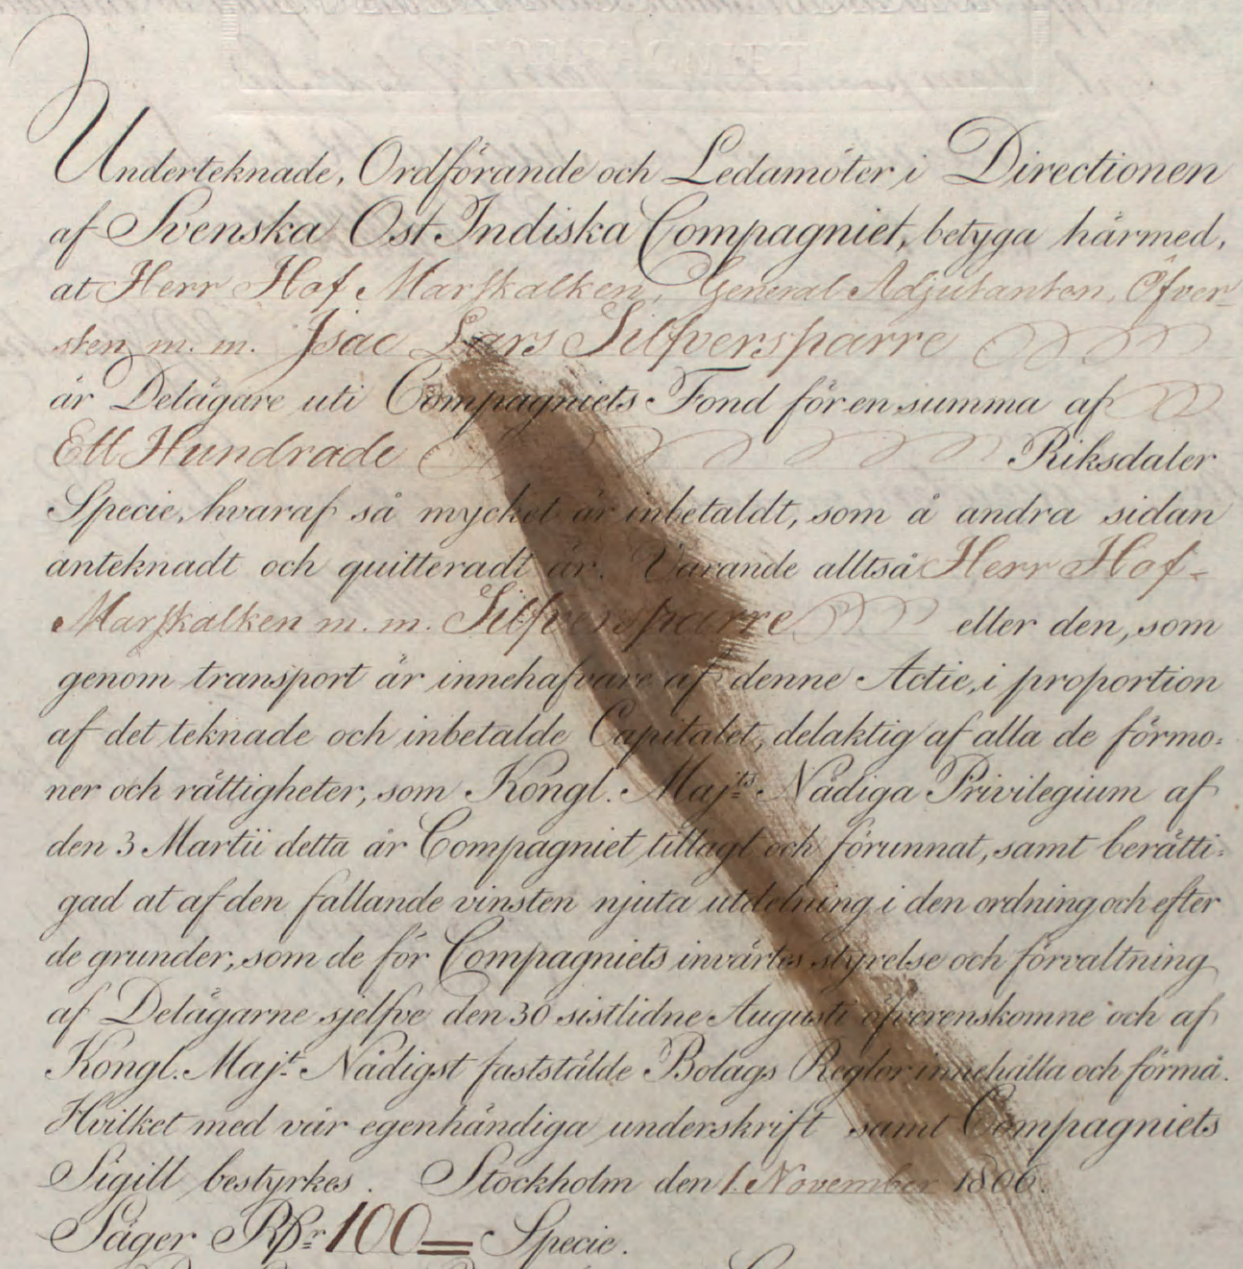 Underteknade, Ordförande och Ledamöter i Directionen
af Svenska Ost Indiska Compagniet, betyga härmed,
at Herr Hof Marskalken, General Adjutanten, Öfver-
sten m. m. Isac Lars Silfversparre
är Delägare uti Compagniets Fond för en summa af
Ett Hundrade Riksdaler
Specie, hvaraf så mycket är inbetaldt, som å andra sidan
anteknadt och quitteradt är. Varande alltså Herr Hof-
Marskalken m. m. Silfversparre eller den, som
genom transport är innehafvare af denne Actie, i proportion
af det teknade och inbetalde Capitalet, delaktig af alla de förmo:
ner och rättigheter, som Kongl. Maj:ts Nådiga Privilegium af
den 3 Martii detta år Compagniet tillagt och förunnat, samt berätti:
gad at af den fallande vinsten njuta utdelning i den ordning och efter
de grunder, som de för Compagniets invärtes styrelse och förvaltning
af Delägarne sjelfve den 30 sistlidne Augusti öfverenskomne och af
Kongl. Maj:t Nådigst fastställde Bolags Reglor innehålla och förmå.
Hvilket med vår egenhändiga underskrift samt Compagniets
Sigill bestyrkes. Stockholm den 1. November 1806.
Säger Rdr 100 = Specie.